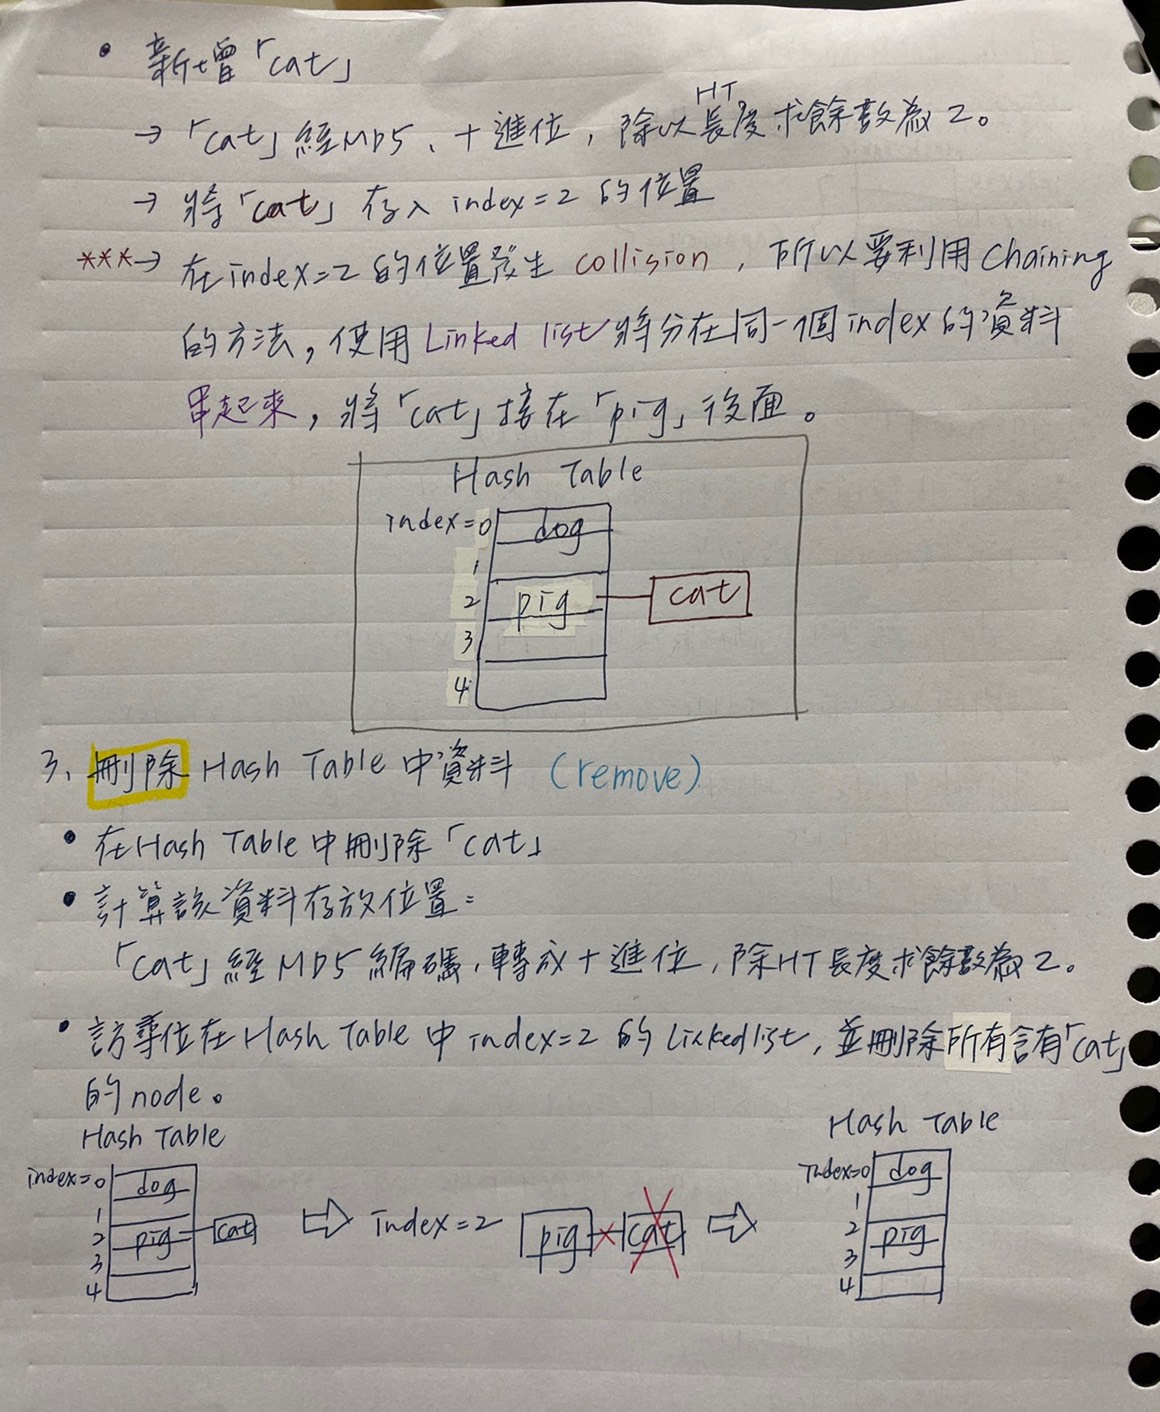 • 新增「cat」
→「cat」經MD5、十進位，除以HT長度求餘數為2。
→ 將「cat」存入 index=2 的位置
***→ 在index=2的位置發生 collision，所以要利用 Chaining
的方法，使用 Linked list 將分在同一個index的資料
串起來，將「cat」接在「pig」後面。
Hash Table
index=0 dog
1
2 pig cat
3
4
3、刪除 Hash Table 中資料 (remove)
• 在Hash Table 中刪除「cat」
• 計算該資料存放位置：
「cat」經MD5編碼，轉成十進位，除HT長度求餘數為2。
• 訪尋位在Hash Table 中 index=2 的 Linked list，並刪除所有含有「cat」
的node。
Hash Table
index=0 dog
1
2 pig cat
3
4
⇨ index=2 pig × cat ⇨
Hash Table
index=0 dog
1
2 pig
3
4